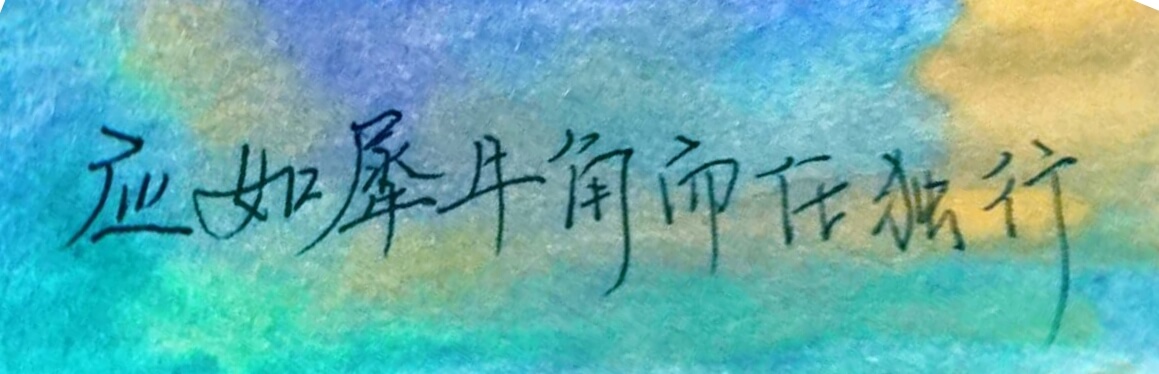 应如犀牛角而任独行